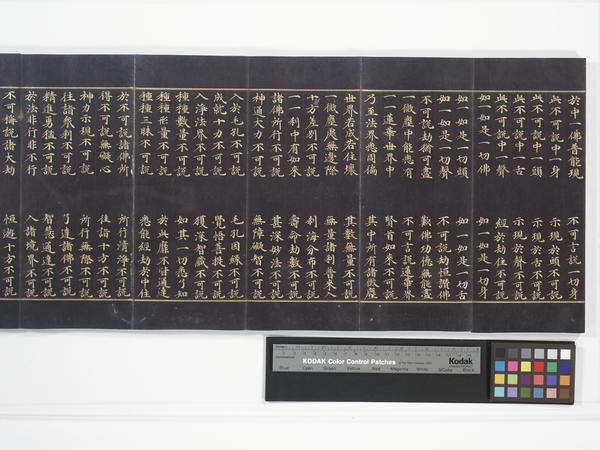 於中一佛普能現 不可言說一切身
此不可說中一身 示現於頭不可說
此不可說中一頭 示現於舌不可說
此不可說中一舌 示現於聲不可說
此不可說中一聲 經於劫住不可說
如一如是一切佛 如一如是一切身
如一如是一切頭 如一如是一切舌
如一如是一切聲 不可說劫恒讚佛
不可說劫猶可盡 歎佛功德無能盡
一微塵中能悉有 不可言說蓮華界
一一蓮華世界中 賢首如來不可說
乃至法界悉周徧 其中所有諸微塵
世界若成若住壞 其數無量不可說
一微塵處無邊際 無量諸剎普來入
十方差別不可說 剎海分布不可說
一一剎中有如來 壽命劫數不可說
諸佛所行不可說 甚深妙法不可說
神通大力不可說 無障礙智不可說
入於毛孔不可說 毛孔因緣不可說
成就十力不可說 覺悟菩提不可說
入淨法界不可說 獲深智藏不可說
種種數量不可說 如其一切悉了知
種種形量不可說 於此靡不皆通達
種種三昧不可說 悉能經劫於中住
於不可說諸佛所 所行清淨不可說
得不可說無礙心 往詣十方不可說
神力示現不可說 所行無際不可說
往詣眾剎不可說 了達諸佛不可說
精進勇猛不可說 智慧通達不可說
於法非行非不行 入諸境界不可說
不可稱說諸大劫 恒遊十方不可說
KODAK Color Control Patches
Kodak
Blue Cyan Green Yellow Red Magenta White 3/Color Black